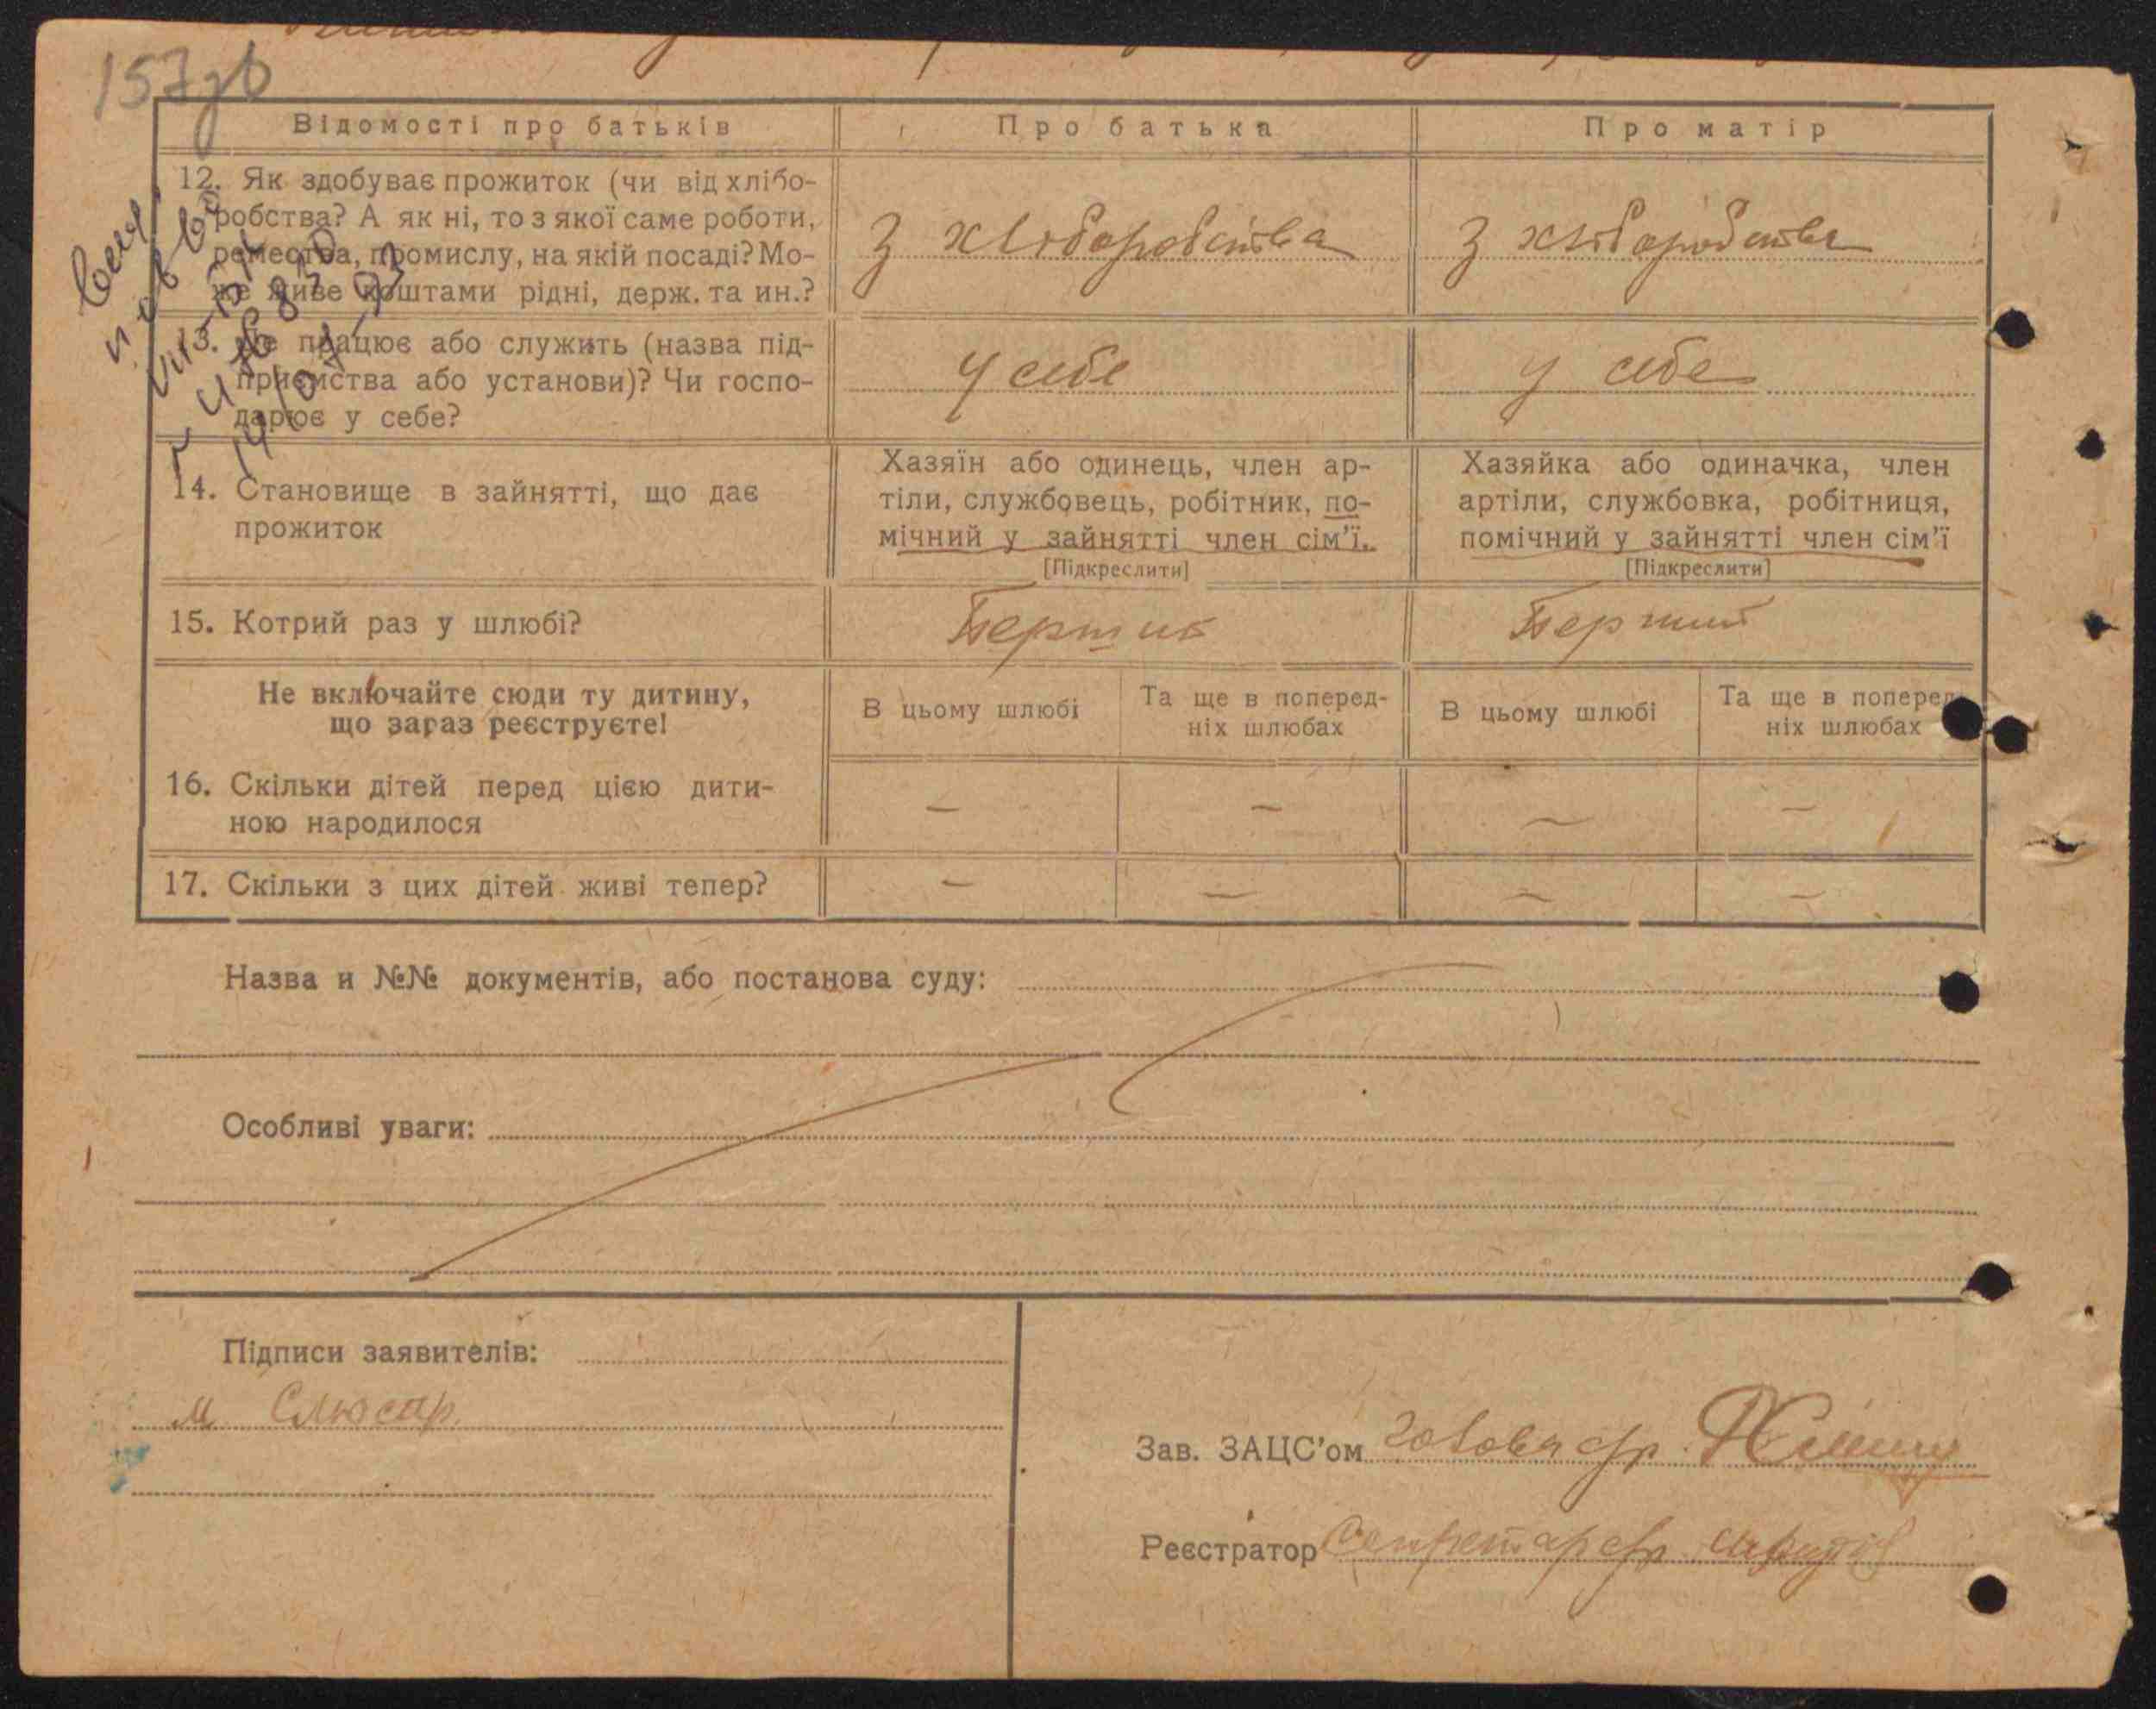 157зв
Відомості про батьків
Про батька
Про матір
12. Як здобуває прожиток (чи від хлібо-
робства? А як ні, то з якої саме роботи,
ремества, промислу, на якій посаді? Мо-
же живе коштами рідні, держ. та ин.?
З хліборобства
З хліборобства
13. Де працює або служить (назва під-
приємства або установи)? Чи госпо-
дарює у себе?
У себе
У себе
14. Становище в зайнятті, що дає
прожиток
Хазяїн або одинець, член ар-
тіли, службовець, робітник, по-
мічний у зайнятті член сім'ї.
[Підкреслити]
Хазяйка або одиначка, член
артіли, службовка, робітниця,
помічний у зайнятті член сім'ї
[Підкреслити]
15. Котрий раз у шлюбі?
Перший
Перший
Не включайте сюди ту дитину,
що зараз реєструєте!
В цьому шлюбі
Та ще в поперед-
ніх шлюбах
В цьому шлюбі
Та ще в поперед-
ніх шлюбах
16. Скільки дітей перед цією дити-
ною народилося
— — — —
17. Скільки з цих дітей живі тепер?
— — — —
Назва и №№ документів, або постанова суду:
Особливі уваги:
Підписи заявителів:
М Слюсар
Зав. ЗАЦС'ом Голова с/р
Реєстратор Секретар с/р